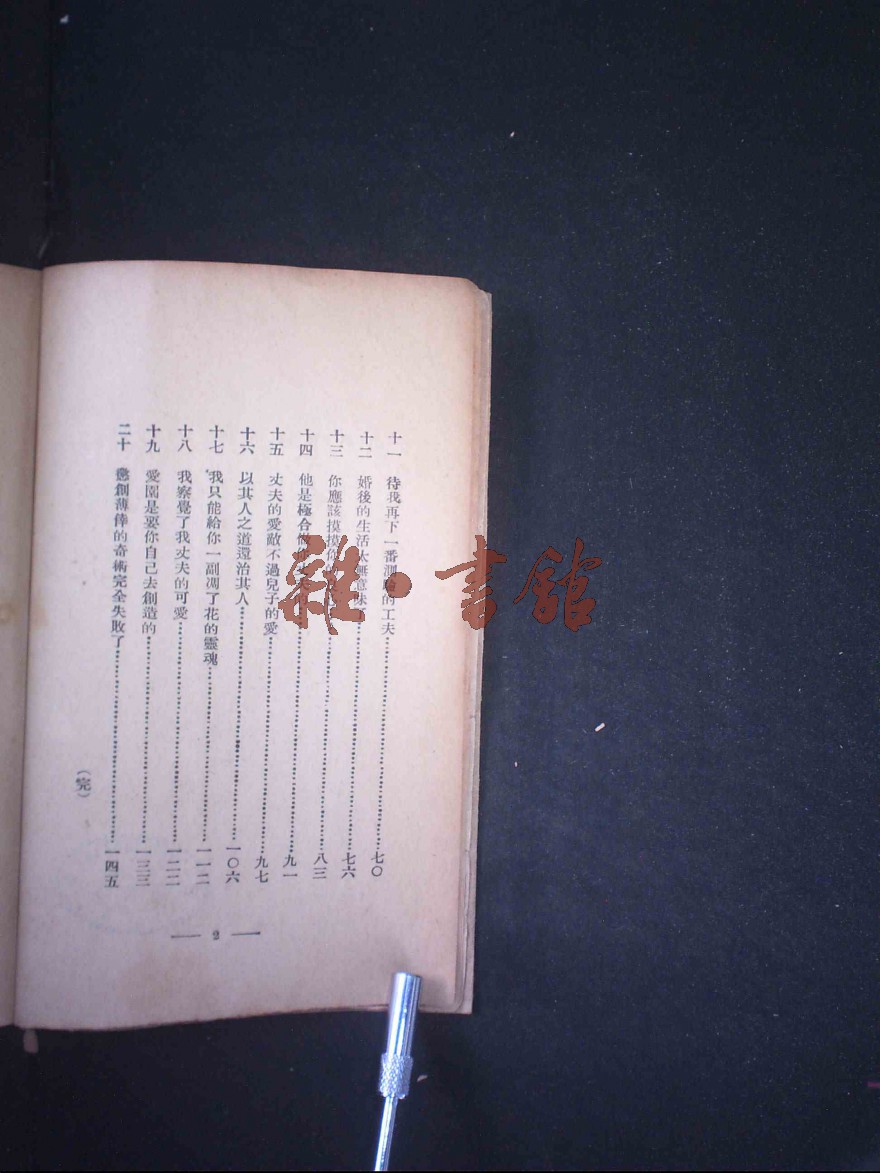 十一 待我再下一番測驗的工夫……七〇
十二 婚後的生活太無意味……七六
十三 你應該摸摸你的……八三
十四 他是極合……的……九一
十五 丈夫的愛敵不過兒子的愛……九七
十六 以其人之道還治其人……一〇六
十七 我只能給你一副凋了花的靈魂……一一二
十八 我察覺了我丈夫的可愛……一二二
十九 愛園是要你自己去創造的……一三三
二十 懲創薄倖的奇術完全失敗了……一四五
（完）
— 2 —
雜·書館